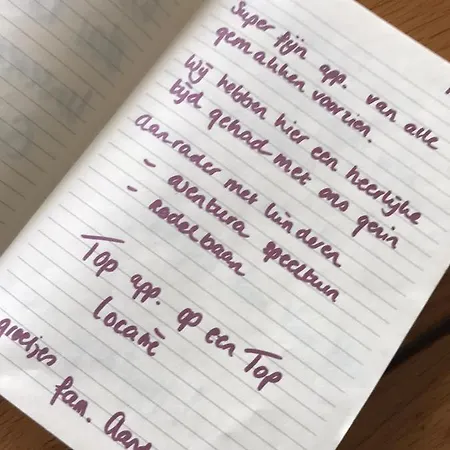 Super fijn app. van alle
gemakken voorzien.
Wij hebben hier een heerlijke
tijd gehad met ons gezin
Aanrader met kinderen
- Aventura speeltuin
- Rodelbaan
Top app. op een Top
locatie
groetjes
fam.